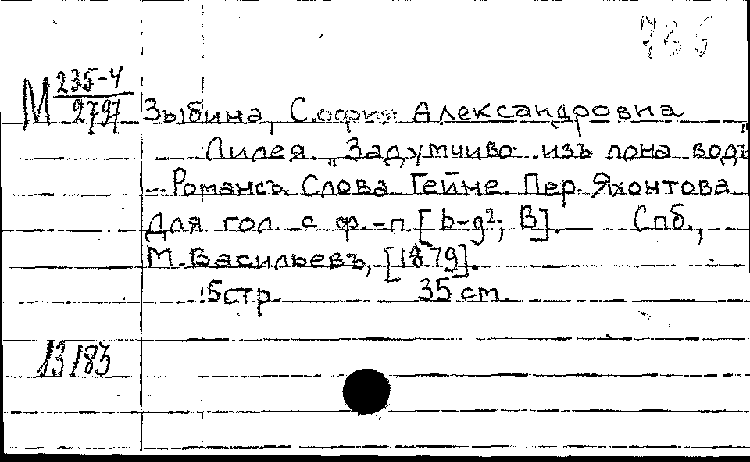 786
М 235-4
2797
Зыбина, София Александровна
Лилея. „Задумчиво изъ лона водъ"
– Романсъ. Слова Гейне. Пер. Яхонтова
Для гол. с ф.-п [b-g²; B]. Спб.,
М. Васильевъ, [1879].
5 стр. 35 cm.
13183